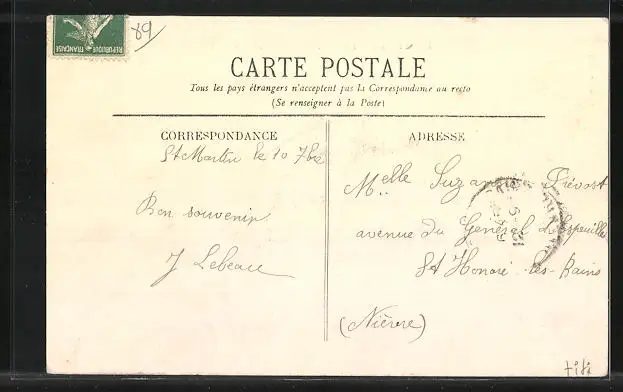 RÉPUBLIQUE FRANÇAISE
89
CARTE POSTALE
Tous les pays étrangers n'acceptent pas la Correspondance au recto
(Se renseigner à la Poste)
CORRESPONDANCE
St Martin le 10 7bre
Bon souvenir
J Lebeau
ADRESSE
Melle Suzanne Prévost
avenue du Général
St Honoré-les-Bains
(Nièvre)